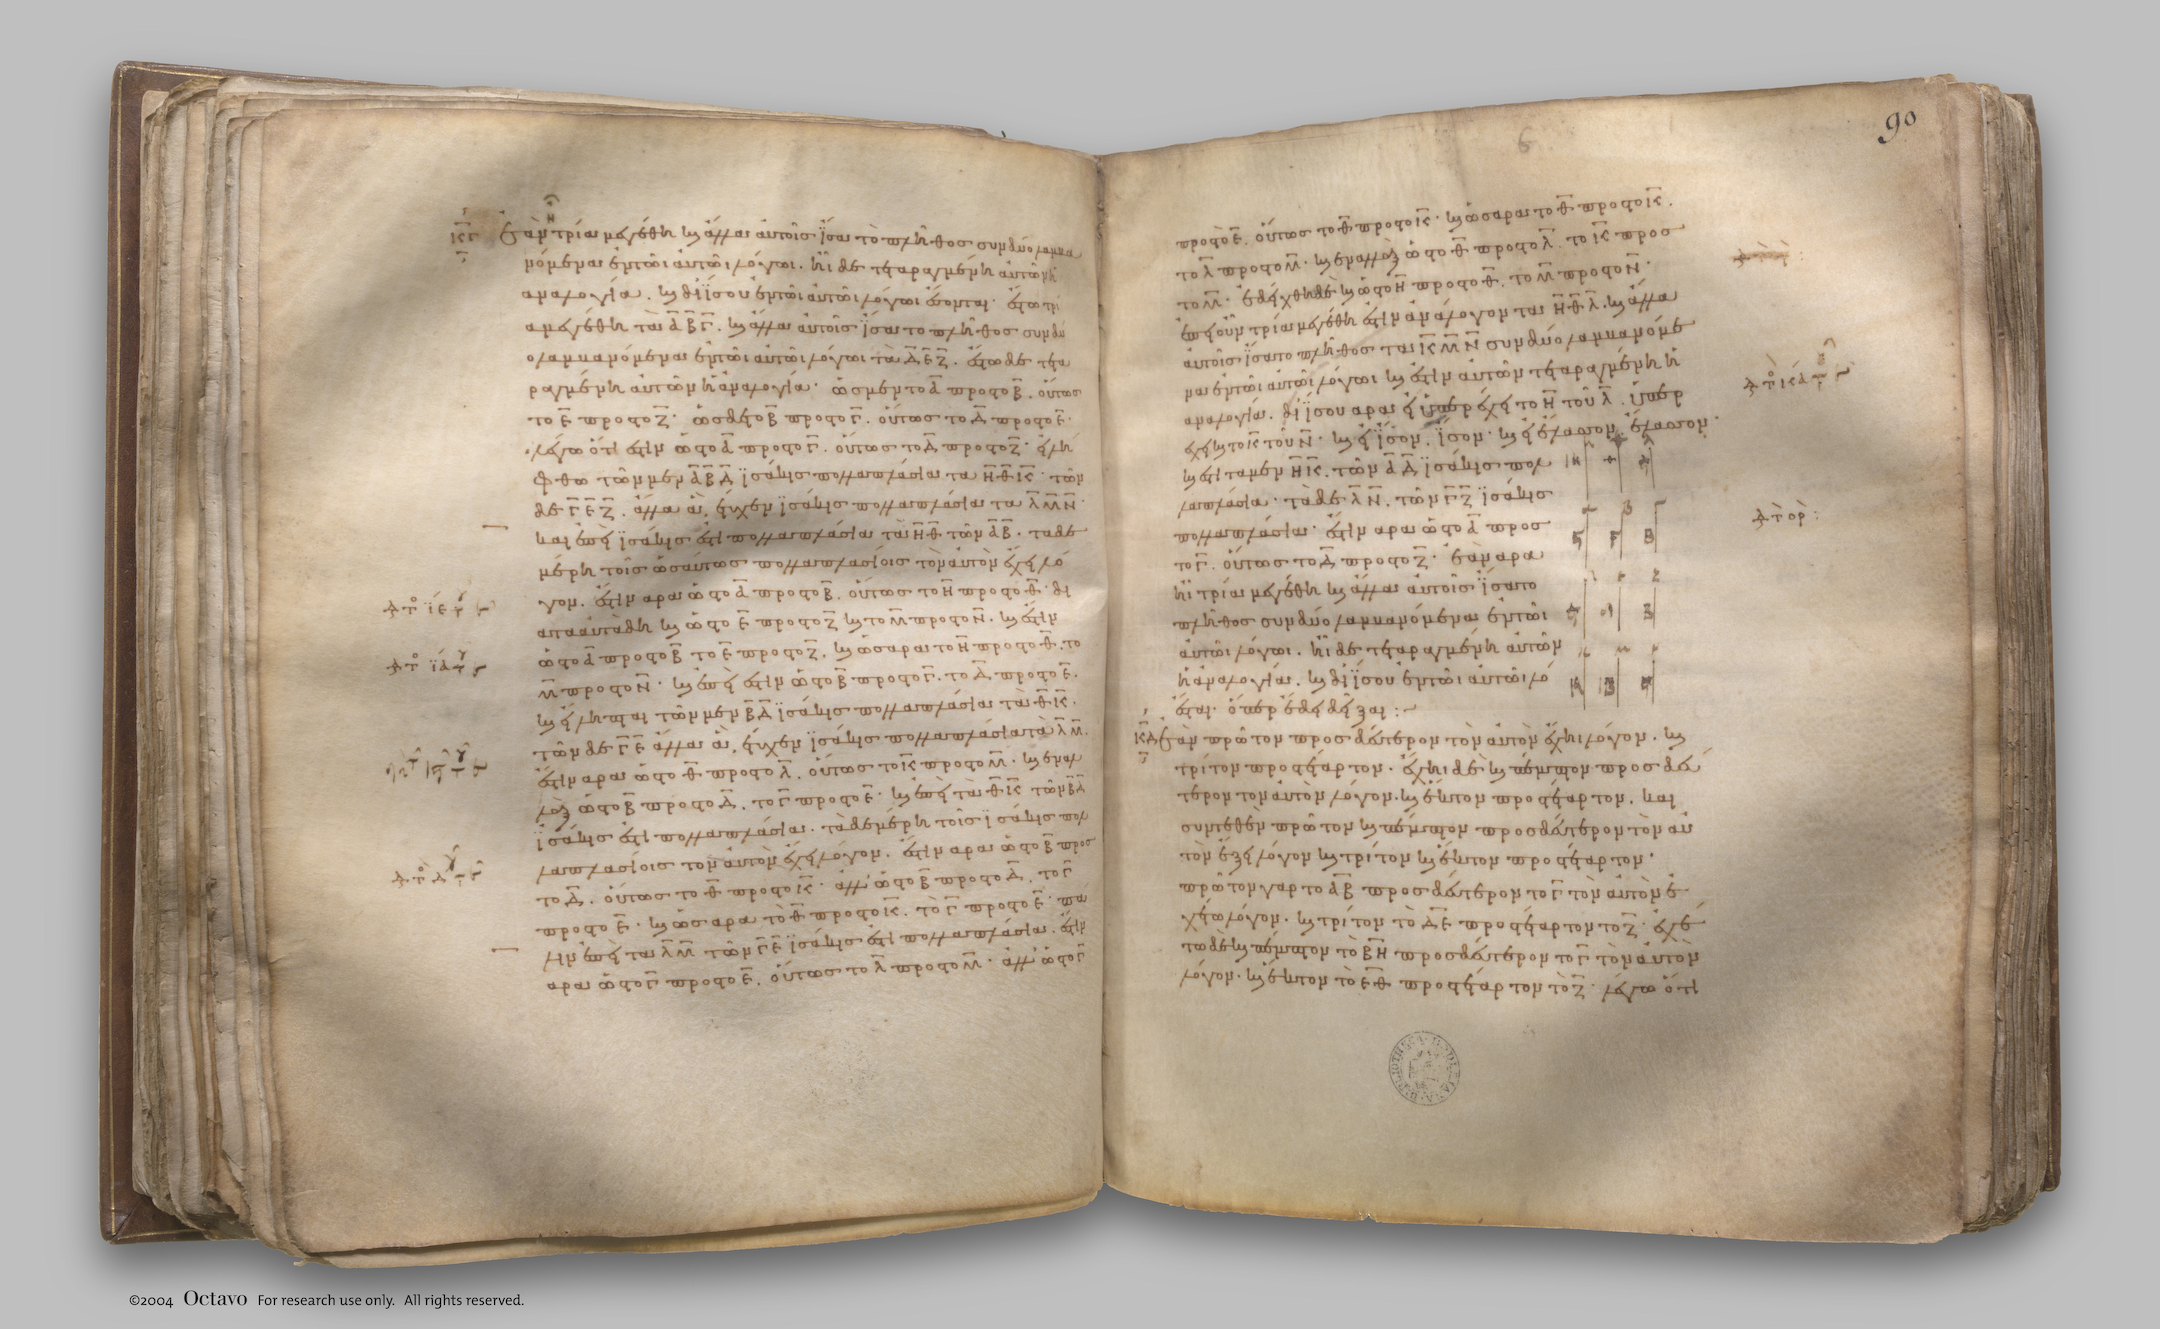 κγ Ἐὰν τρία μεγέθη ϗ ἄλλα αὐτοῖς ἴσα τὸ πλῆθος σύνδυο λαμβα
νόμενα ἐν τῶι αὐτῶι λόγωι. ἦι δὲ τεταραγμένη αὐτῶν ἡ
ἀναλογία. ϗ δι ἴσου ἐν τῶι αὐτῶι λόγωι ἔσονται. ἔστω τρί
α μεγέθη τὰ Α Β Γ. ϗ ἄλλα αὐτοῖς ἴσα τὸ πλῆθος σύνδυ
ο λαμβανόμενα ἐν τῶι αὐτῶι λόγωι τὰ Δ Ε Ζ. ἔστω δὲ τετα
ραγμένη αὐτῶν ἡ ἀναλογία· ὡς μὲν τὸ Α πρὸς τὸ Β. οὕτως
τὸ Ε πρὸς τὸ Ζ· ὡς δὲ τὸ Β πρὸς τὸ Γ. οὕτως τὸ Δ πρὸς τὸ Ε·
λέγω ὅτι ἐστὶν ὡς τὸ Α πρὸς τὸ Γ. οὕτως τὸ Δ πρὸς τὸ Ζ· εἰλή
φθω τῶν μὲν Α Β Δ ἰσάκις πολλαπλάσια τὰ Η Θ Κ· τῶν
δὲ Γ Ε Ζ. ἄλλα ἃ ἔτυχεν ἰσάκις πολλαπλάσια τὰ Λ Μ Ν·
καὶ ἐπεὶ ἰσάκις ἐστὶ πολλαπλάσια τὰ Η Θ τῶν Α Β. τὰ δὲ
μέρη τοῖς ὡσαύτως πολλαπλασίοις τὸν αὐτὸν ἔχει λό
γον. ἔστιν ἄρα ὡς τὸ Α πρὸς τὸ Β. οὕτως τὸ Η πρὸς τὸ Θ. δι
ὰ τὰ αὐτὰ δὴ ϗ ὡς τὸ Ε πρὸς τὸ Ζ ϗ τὸ Μ πρὸς τὸ Ν. ϗ ἔστιν
ὡς τὸ Α πρὸς τὸ Β τὸ Ε πρὸς τὸ Ζ. ϗ ὡς ἄρα τὸ Η πρὸς τὸ Θ. τὸ
Μ πρὸς τὸ Ν· ϗ ἐπεί ἐστιν ὡς τὸ Β πρὸς τὸ Γ. τὸ Δ πρὸς τὸ Ε.
ϗ εἴληπται τῶν μὲν Β Δ ἰσάκις πολλαπλάσια τὰ Θ Κ.
τῶν δὲ Γ Ε ἄλλα ἃ ἔτυχεν ἰσάκις πολλαπλάσια τὰ Λ Μ.
ἔστιν ἄρα ὡς τὸ Θ πρὸς τὸ Λ. οὕτως τὸ Κ πρὸς τὸ Μ. ϗ ἐναλ
λὰξ ὡς τὸ Β πρὸς τὸ Δ. τὸ Γ πρὸς τὸ Ε· ϗ ἐπεὶ τὰ Θ Κ τῶν Β Δ
ἰσάκις ἐστὶ πολλαπλάσια. τὰ δὲ μέρη τοῖς ἰσάκις πολ
λαπλασίοις τὸν αὐτὸν ἔχει λόγον. ἔστιν ἄρα ὡς τὸ Β πρὸς
τὸ Δ. οὕτως τὸ Θ πρὸς τὸ Κ· ἀλλ' ὡς τὸ Β πρὸς τὸ Δ. τὸ Γ
πρὸς τὸ Ε· ϗ ὡς ἄρα τὸ Θ πρὸς τὸ Κ. τὸ Γ πρὸς τὸ Ε· πά
λιν ἐπεὶ τὰ Λ Μ τῶν Γ Ε ἰσάκις ἐστὶ πολλαπλάσια. ἔστιν
ἄρα ὡς τὸ Γ πρὸς τὸ Ε. οὕτως τὸ Λ πρὸς τὸ Μ· ἀλλ' ὡς τὸ Γ
90
πρὸς τὸ Ε. οὕτως τὸ Θ πρὸς τὸ Κ· ϗ ὡς ἄρα τὸ Θ πρὸς τὸ Κ.
τὸ Λ πρὸς τὸ Μ· ϗ ἐναλλὰξ ὡς τὸ Θ πρὸς τὸ Λ. τὸ Κ πρὸς
τὸ Μ· ἐδείχθη δὲ ϗ ὡς τὸ Η πρὸς τὸ Θ. τὸ Μ πρὸς τὸ Ν·
ἐπεὶ οὖν τρία μεγέθη ἐστὶν ἀνάλογον τὰ Η Θ Λ. ϗ ἄλλα
αὐτοῖς ἴσα τὸ πλῆθος τὰ Κ Μ Ν σύνδυο λαμβανόμε
να ἐν τῶι αὐτῶι λόγωι ϗ ἔστιν αὐτῶν τεταραγμένη ἡ
ἀναλογία. δι ἴσου ἄρα εἰ ὑπερέχει τὸ Η τοῦ Λ. ὑπερ
έχει ϗ τὸ Κ τοῦ Ν· ϗ εἰ ἴσον, ἴσον· ϗ εἰ ἔλαττον, ἔλαττον·
ϗ ἔστι τὰ μὲν Η Κ. τῶν Α Δ ἰσάκις πολ
λαπλάσια· τὰ δὲ Λ Ν. τῶν Γ Ζ ἰσάκις
πολλαπλάσια· ἔστιν ἄρα ὡς τὸ Α πρὸς
τὸ Γ. οὕτως τὸ Δ πρὸς τὸ Ζ· ἐὰν ἄρα
ἦι τρία μεγέθη ϗ ἄλλα αὐτοῖς ἴσα τὸ
πλῆθος σύνδυο λαμβανόμενα ἐν τῶι
αὐτῶι λόγωι. ἦι δὲ τεταραγμένη αὐτῶν
ἡ ἀναλογία. ϗ δι ἴσου ἐν τῶι αὐτῶι λό
ἔσται· ὅπερ ἔδει δεῖξαι :~
κδ Ἐὰν πρῶτον πρὸς δεύτερον τὸν αὐτὸν ἔχηι λόγον. ϗ
τρίτον πρὸς τέταρτον· ἔχηι δὲ ϗ πέμπτον πρὸς δεύ
τερον τὸν αὐτὸν λόγον. ϗ ἕκτον πρὸς τέταρτον. καὶ
συντεθὲν πρῶτον ϗ πέμπτον πρὸς δεύτερον τὸν αὐ
τὸν ἕξει λόγον ϗ τρίτον ϗ ἕκτον πρὸς τέταρτον·
πρῶτον γὰρ τὸ ΑΒ πρὸς δεύτερον τὸ Γ τὸν αὐτὸν ἐ
χέτω λόγον. ϗ τρίτον τὸ ΔΕ πρὸς τέταρτον τὸ Ζ· ἐχέ
τω δὲ ϗ πέμπτον τὸ ΒΗ πρὸς δεύτερον τὸ Γ τὸν αὐτὸν
λόγον· ϗ ἕκτον τὸ ΕΘ πρὸς τέταρτον τὸ Ζ· λέγω ὅτι
©2004 Octavo For research use only. All rights reserved.